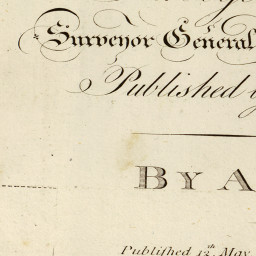 Surveyor General
Published
BY A
Publiſhed 13th May